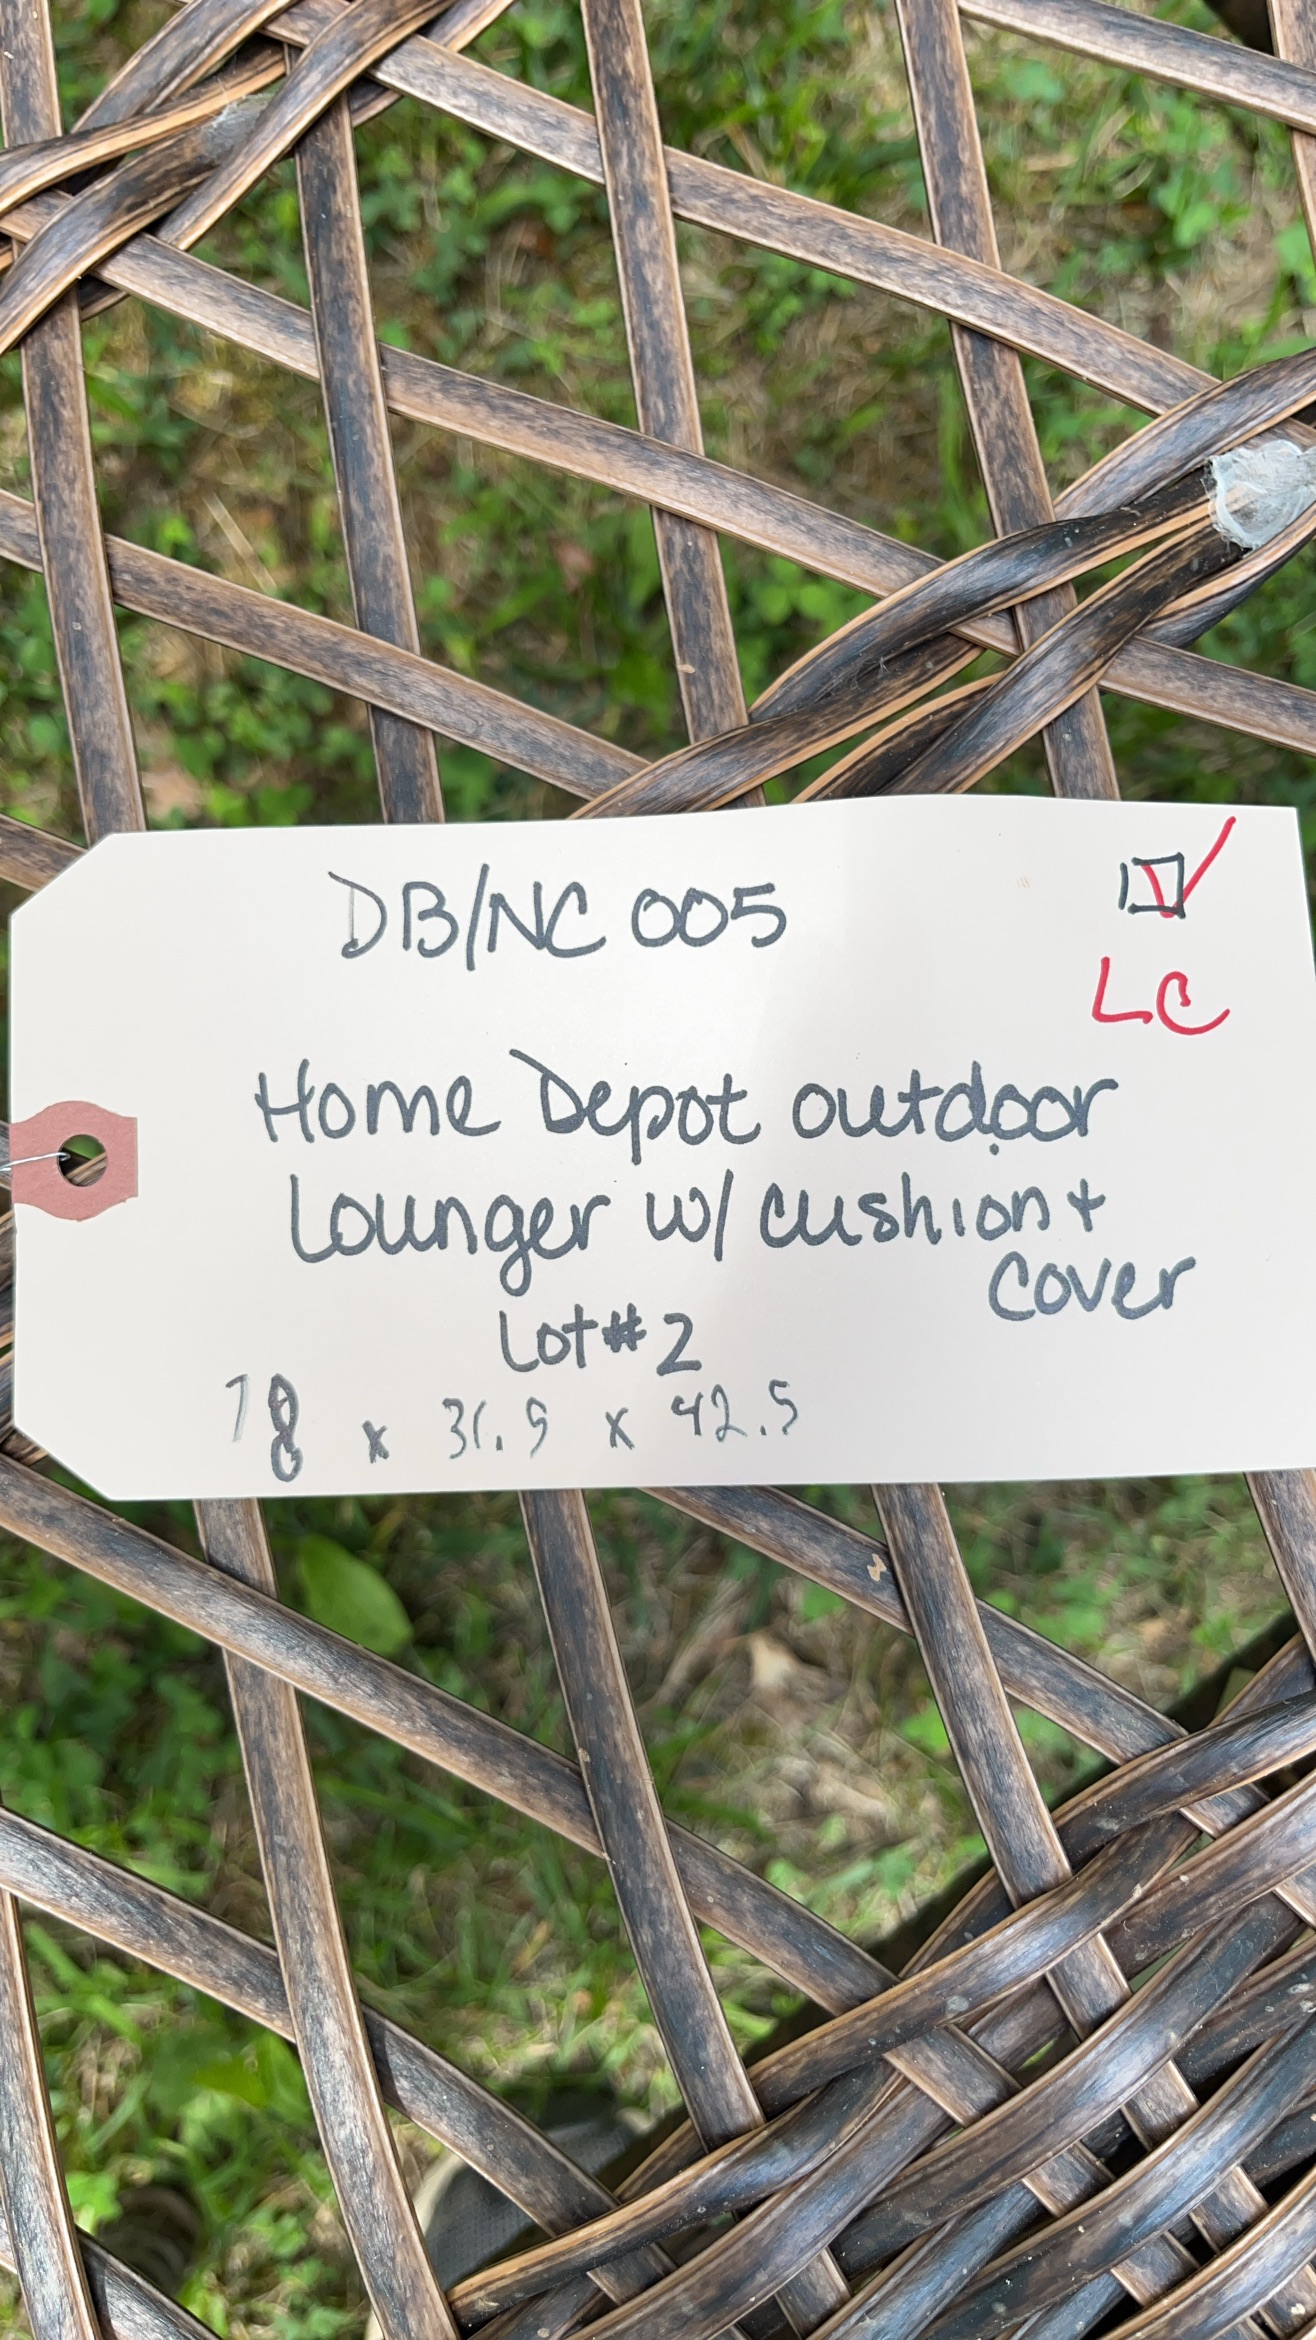 DB/NC 005
LC
Home Depot outdoor
Lounger w/ cushion +
cover
Lot # 2
78 x 31.5 x 42.5